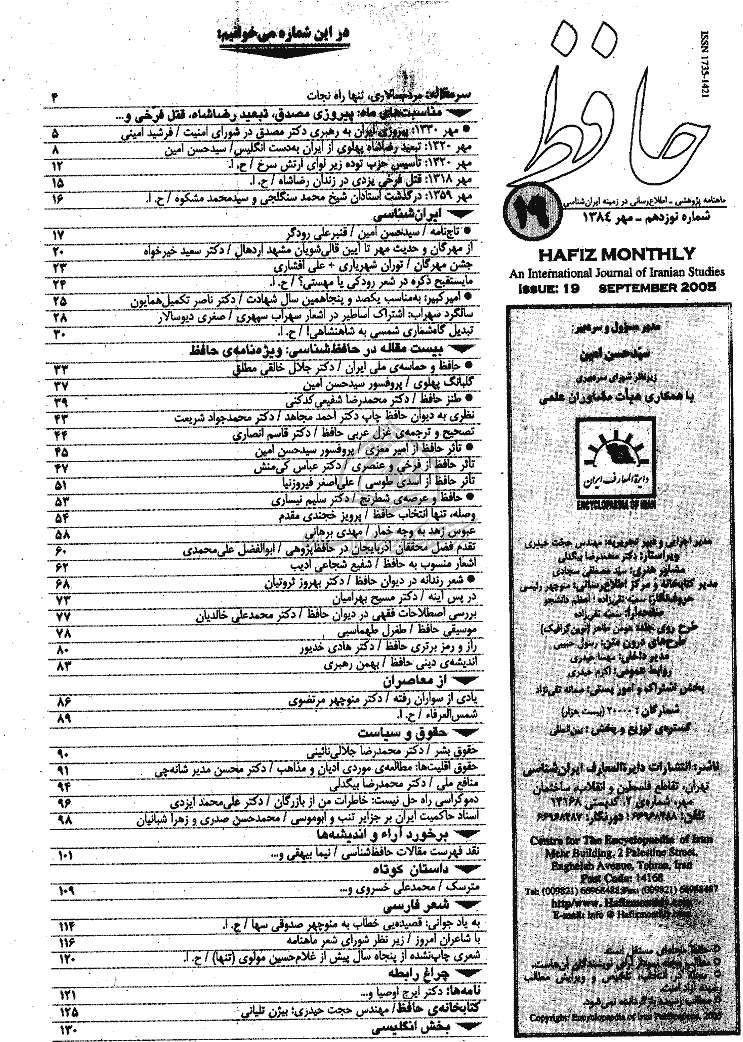 ISSN 1735-1421
حافظ
ماهنامه پژوهشی - اطلاع‌رسانی در زمینه ایران‌شناسی
۱۹
شماره نوزدهم - مهر ۱۳۸۴
HAFIZ MONTHLY
An International Journal of Iranian Studies
ISSUE: 19 SEPTEMBER 2005
مدیر مسؤول و سردبیر:
سیّدحسن امین
زیرنظر شورای سردبیری
با همکاری هیأت مشاوران علمی
دایرة‌المعارف ایران
ENCYCLOPAEDIA OF IRAN
مدیر اجرایی و دبیر تحریریه: مهندس حجت حیدری
ویراستار: دکتر محمدرضا بیگدلی
مشاور هنری: سید مصطفی سجادی
مدیر کتابخانه و مرکز اطلاع‌رسانی: منوچهر رئیسی
طرح روی جلد: هومن طاهر (نوین گرافیک)
طرح‌های درون متن: رسول حبیبی
مدیر داخلی: مهسا حیدری
روابط عمومی: اکرم حیدری
بخش اشتراک و امور پستی: سمانه تقی‌نژاد
شمارگان: ۲۰۰۰۰ (بیست هزار)
گستره‌ی توزیع و پخش: بین‌المللی
ناشر: انتشارات دایرة‌المعارف ایران‌شناسی
تهران، تقاطع فلسطین و انقلاب، ساختمان
مهر، شماره‌ی ۲، کدپستی ۱۴۱۶۸
تلفن: ۶۶۹۶۸۴۸۸ دورنگار: ۶۶۹۶۸۴۸۷
Centre for The Encyclopaedia of Iran
Mehr Building, 2 Palestine Street,
Enghelab Avenue, Tehran, Iran
Post Code: 14168
Tel: (009821) 66968488 Fax: (009821) 66968487
http/www. Hafizmonthly.com
E-mail: info @ Hafizmonthly.com
Copyright: Encyclopaedia of Iran 2005
در این شماره می‌خوانیم:
سرمقاله: مردسالاری، تنها راه نجات ۴
مناسبت‌های ماه: پیروزی مصدق، تبعید رضاشاه، قتل فرخی و...
مهر ۱۳۳۰: پیروزی ایران به رهبری دکتر مصدق در شورای امنیت / فرشید امینی ۵
مهر ۱۳۲۰: تبعید رضاشاه پهلوی از ایران به‌دست انگلیس / سیدحسن امین ۸
مهر ۱۳۲۰: تأسیس حزب توده زیر لوای ارتش سرخ / ح. ا. ۱۲
مهر ۱۳۱۸: قتل فرخی یزدی در زندان رضاشاه / ح. ا. ۱۵
مهر ۱۳۵۹: درگذشت استادان شیخ محمد سنگلجی و سیدمحمد مشکوه / ح. ا. ۱۶
ایران‌شناسی
تاج‌نامه / سیدحسن امین / قنبرعلی رودگر ۱۷
از مهرگان و حدیث مهر تا آیین قالی‌شویان مشهد اردهال / دکتر سعید خیرخواه ۲۰
جشن مهرگان / توران شهریاری + علی افشاری ۲۳
مایستقبح ذکره در شعر رودکی یا مهستی؟ / ح. ا. ۲۴
امیرکبیر: به‌مناسبت یکصد و پنجاهمین سال شهادت / دکتر ناصر تکمیل‌همایون ۲۵
سالگرد سهراب: اشتراک اساطیر در اشعار سهراب سپهری / صغری دیوسالار ۲۸
تبدیل گاه‌شماری شمسی به شاهنشاهی! / ح. ا. ۳۰
بیست مقاله در حافظ‌شناسی: ویژه‌نامه‌ی حافظ
حافظ و حماسه‌ی ملی ایران / دکتر جلال خالقی مطلق ۳۳
گلبانگ پهلوی / پروفسور سیدحسن امین ۳۷
طنز حافظ / دکتر محمدرضا شفیعی‌کدکنی ۳۹
نظری به دیوان حافظ چاپ دکتر احمد مجاهد / دکتر محمدجواد شریعت ۴۳
تصحیح و ترجمه‌ی غزل عربی حافظ / دکتر قاسم انصاری ۴۴
تأثر حافظ از امیر معزی / پروفسور سیدحسن امین ۴۵
تأثر حافظ از فرخی و عنصری / دکتر عباس کی‌منش ۴۷
تأثر حافظ از اسدی طوسی / علی‌اصغر فیروزنیا ۵۱
حافظ و عرصه‌ی شطرنج / دکتر سلیم نیساری ۵۳
وصله، تنها انتخاب حافظ / پرویز خجندی مقدم ۵۴
عبوس زهد به وجه خمار / مهدی برهانی ۵۸
تقدم فضل محققان آذربایجان در حافظ‌پژوهی / ابوالفضل علی‌محمدی ۶۰
اشعار منسوب به حافظ / شفیع شجاعی ادیب ۶۲
شعر رندانه در دیوان حافظ / دکتر بهروز ثروتیان ۶۸
در پس آینه / دکتر مسیح بهرامیان ۷۳
بررسی اصطلاحات فقهی در دیوان حافظ / دکتر محمدعلی خالدیان ۷۷
موسیقی حافظ / طغرل طهماسبی ۷۸
راز و رمز برتری حافظ / دکتر هادی خدیور ۸۰
اندیشه‌ی دینی حافظ / بهمن رهبری ۸۳
از معاصران
یادی از سواران رفته / دکتر منوچهر مرتضوی ۸۶
شمس‌العرفاء / ح. ا. ۸۹
حقوق و سیاست
حقوق بشر / دکتر محمدرضا جلالی‌نائینی ۹۰
حقوق اقلیت‌ها: مطالعه‌ی موردی ادیان و مذاهب / دکتر محسن مدیر شانه‌چی ۹۱
منافع ملی / دکتر محمدرضا بیگدلی ۹۴
دموکراسی راه حل نیست: خاطرات من از بازرگان / دکتر علی‌محمد ایزدی ۹۶
اسناد حاکمیت ایران بر جزایر تنب و ابوموسی / محمدحسن صدری و زهرا شبانیان ۹۸
برخورد آراء و اندیشه‌ها
نقد فهرست مقالات حافظ‌شناسی / نیما بیهقی و... ۱۰۱
داستان کوتاه
مترسک / محمدعلی خسروی و... ۱۰۹
شعر فارسی
به یاد جوانی: قصیده‌یی خطاب به منوچهر صدوقی سها / ح. ا. ۱۱۴
با شاعران امروز / زیر نظر شورای شعر ماهنامه ۱۱۶
شعری چاپ‌نشده از پنجاه سال پیش از غلامحسین مولوی (تنها) / ح. ا. ۱۲۰
چراغ رابطه
نامه‌ها: دکتر ایرج اوصیا و... ۱۲۱
کتابخانه‌ی حافظ / مهندس حجت حیدری؛ بیژن تلیانی ۱۲۵
بخش انگلیسی ۱۳۰